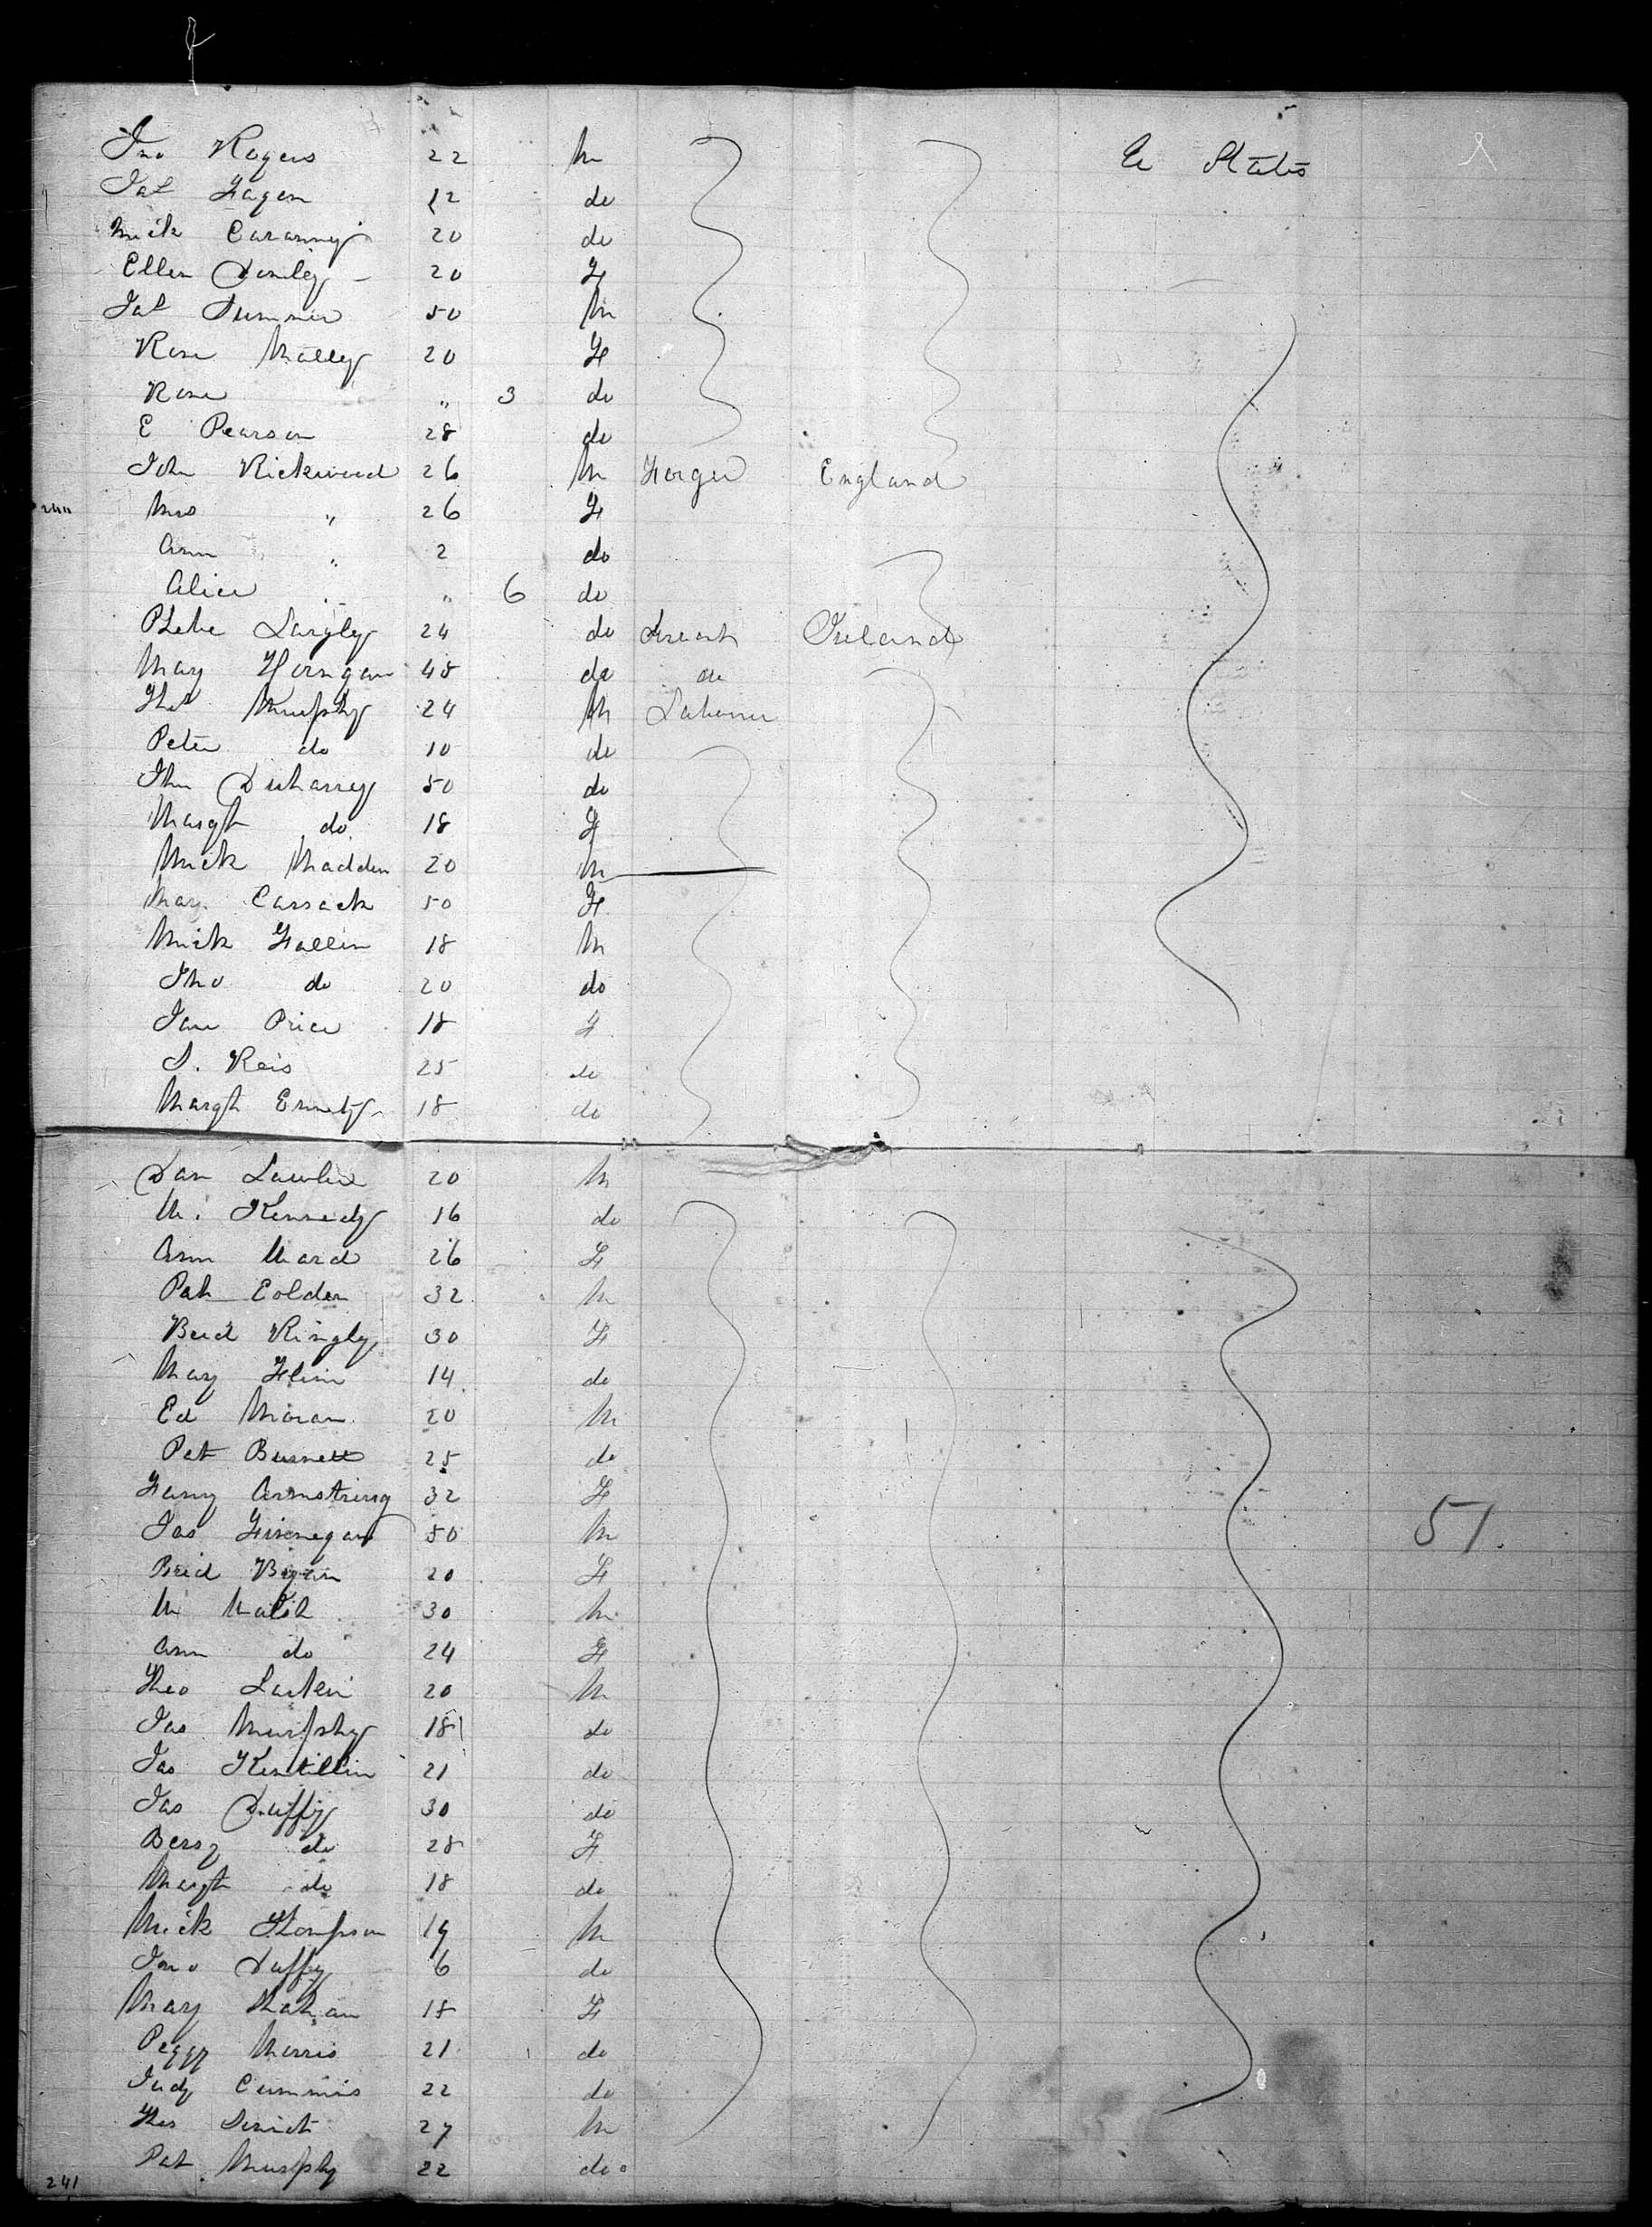 Jno Rogers 22 M U States
Pat Fagen 12 do
Mick 20 do
Ellen 20 F
Pat 50 M
Rose Mally 20 F
Rose " 3 do
E Pearson 28 do
John Rickwood 26 M England
Mrs " 26 F
Ann " 2 do
Alice " " 6 do
Phebe Langly 24 do Ireland
Mary Horngan 48 do do
Thos Murphy 24 M Labourer
Peter do 10 do
Jhn 50 do
Margt do 18 F
Mick Madden 20 M
Mary Cassack 50 F
Mick Fallin 18 M
Jno do 20 do
Jane Price 18 F
S. Reis 25 do
Margh 18 do
Dan Lawler 20 M
M. Kennedy 16 do
Ann Ward 26 F
Pat Colder 32 M
Brid Kingly 30 F
Mary Flinn 14 do
Ed Moran 20 M
Pat Burnett 25 do
Fanny Armstrong 32 F
Jas Finnegan 50 M 51.
Brid Bryan 20 F
M Walsh 30 M
Ann do 24 F
Theo Larkin 20 M
Jas Murphy 18 do
Jas 21 do
Jas Duffy 30 do
Bessy do 28 F
Margt do 18 do
Mick Thompson 19 M
Jno Duffy 6 do
Mary Mahan 18 F
Peggy Morris 21 do
Judy Cummins 22 do
Thos 27 M
Pat Murphy 22 do
241